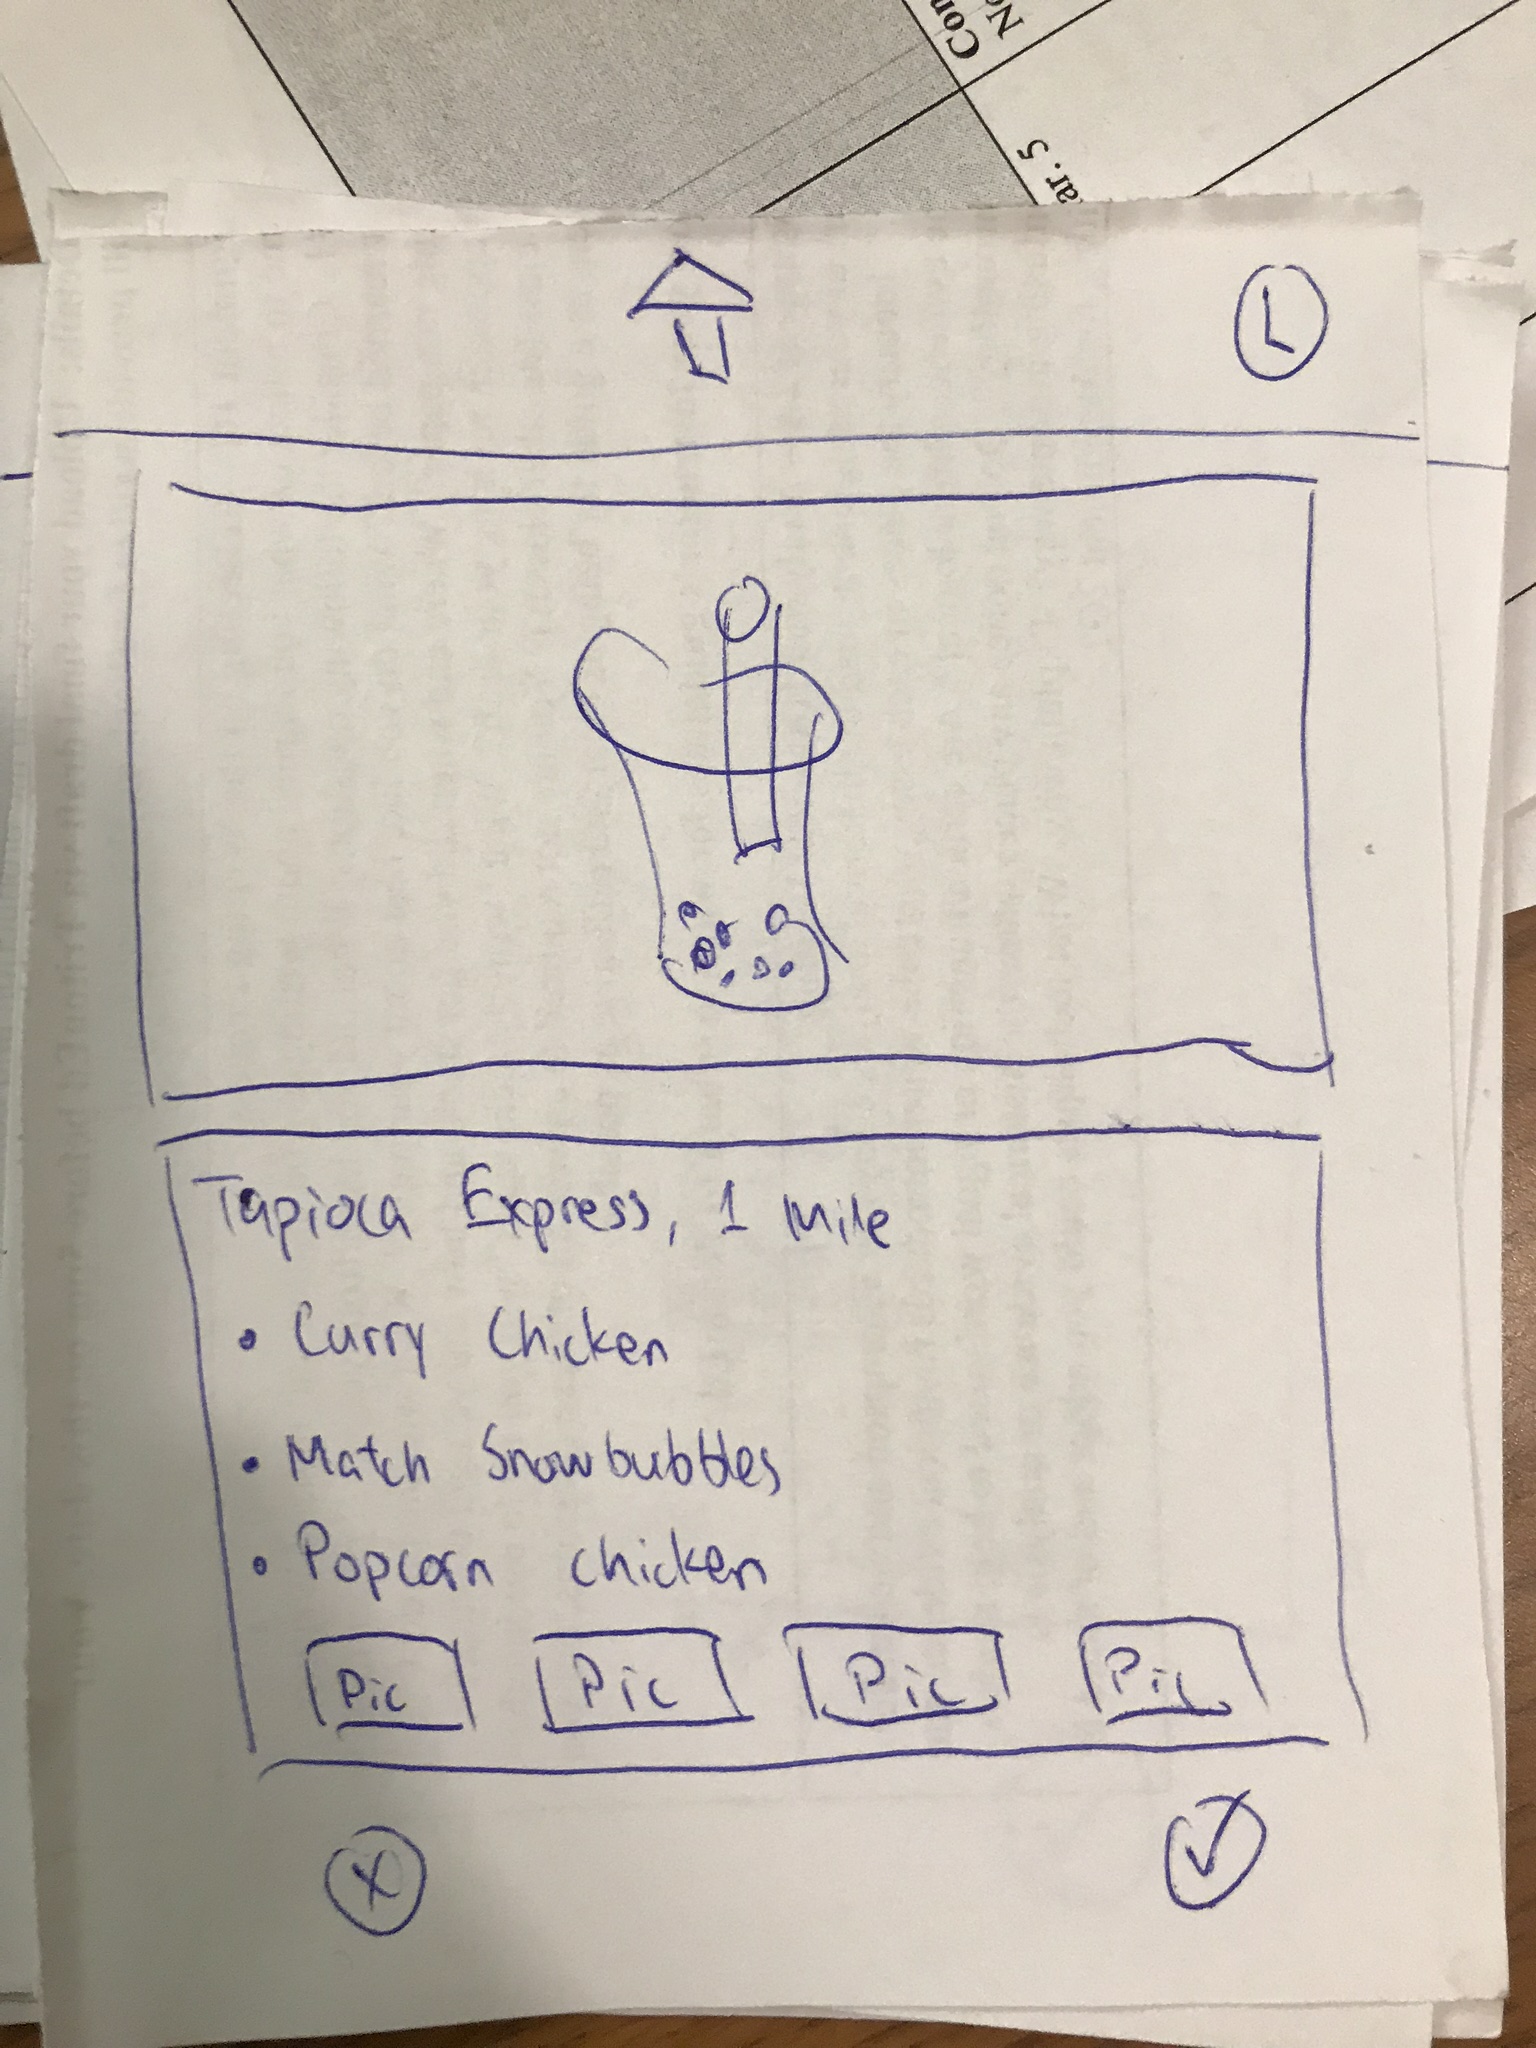 Con
No
ar. 5
Tapioca Express, 1 Mile
• Curry Chicken
• Match Snowbubbles
• Popcorn chicken
Pic Pic Pic Pic